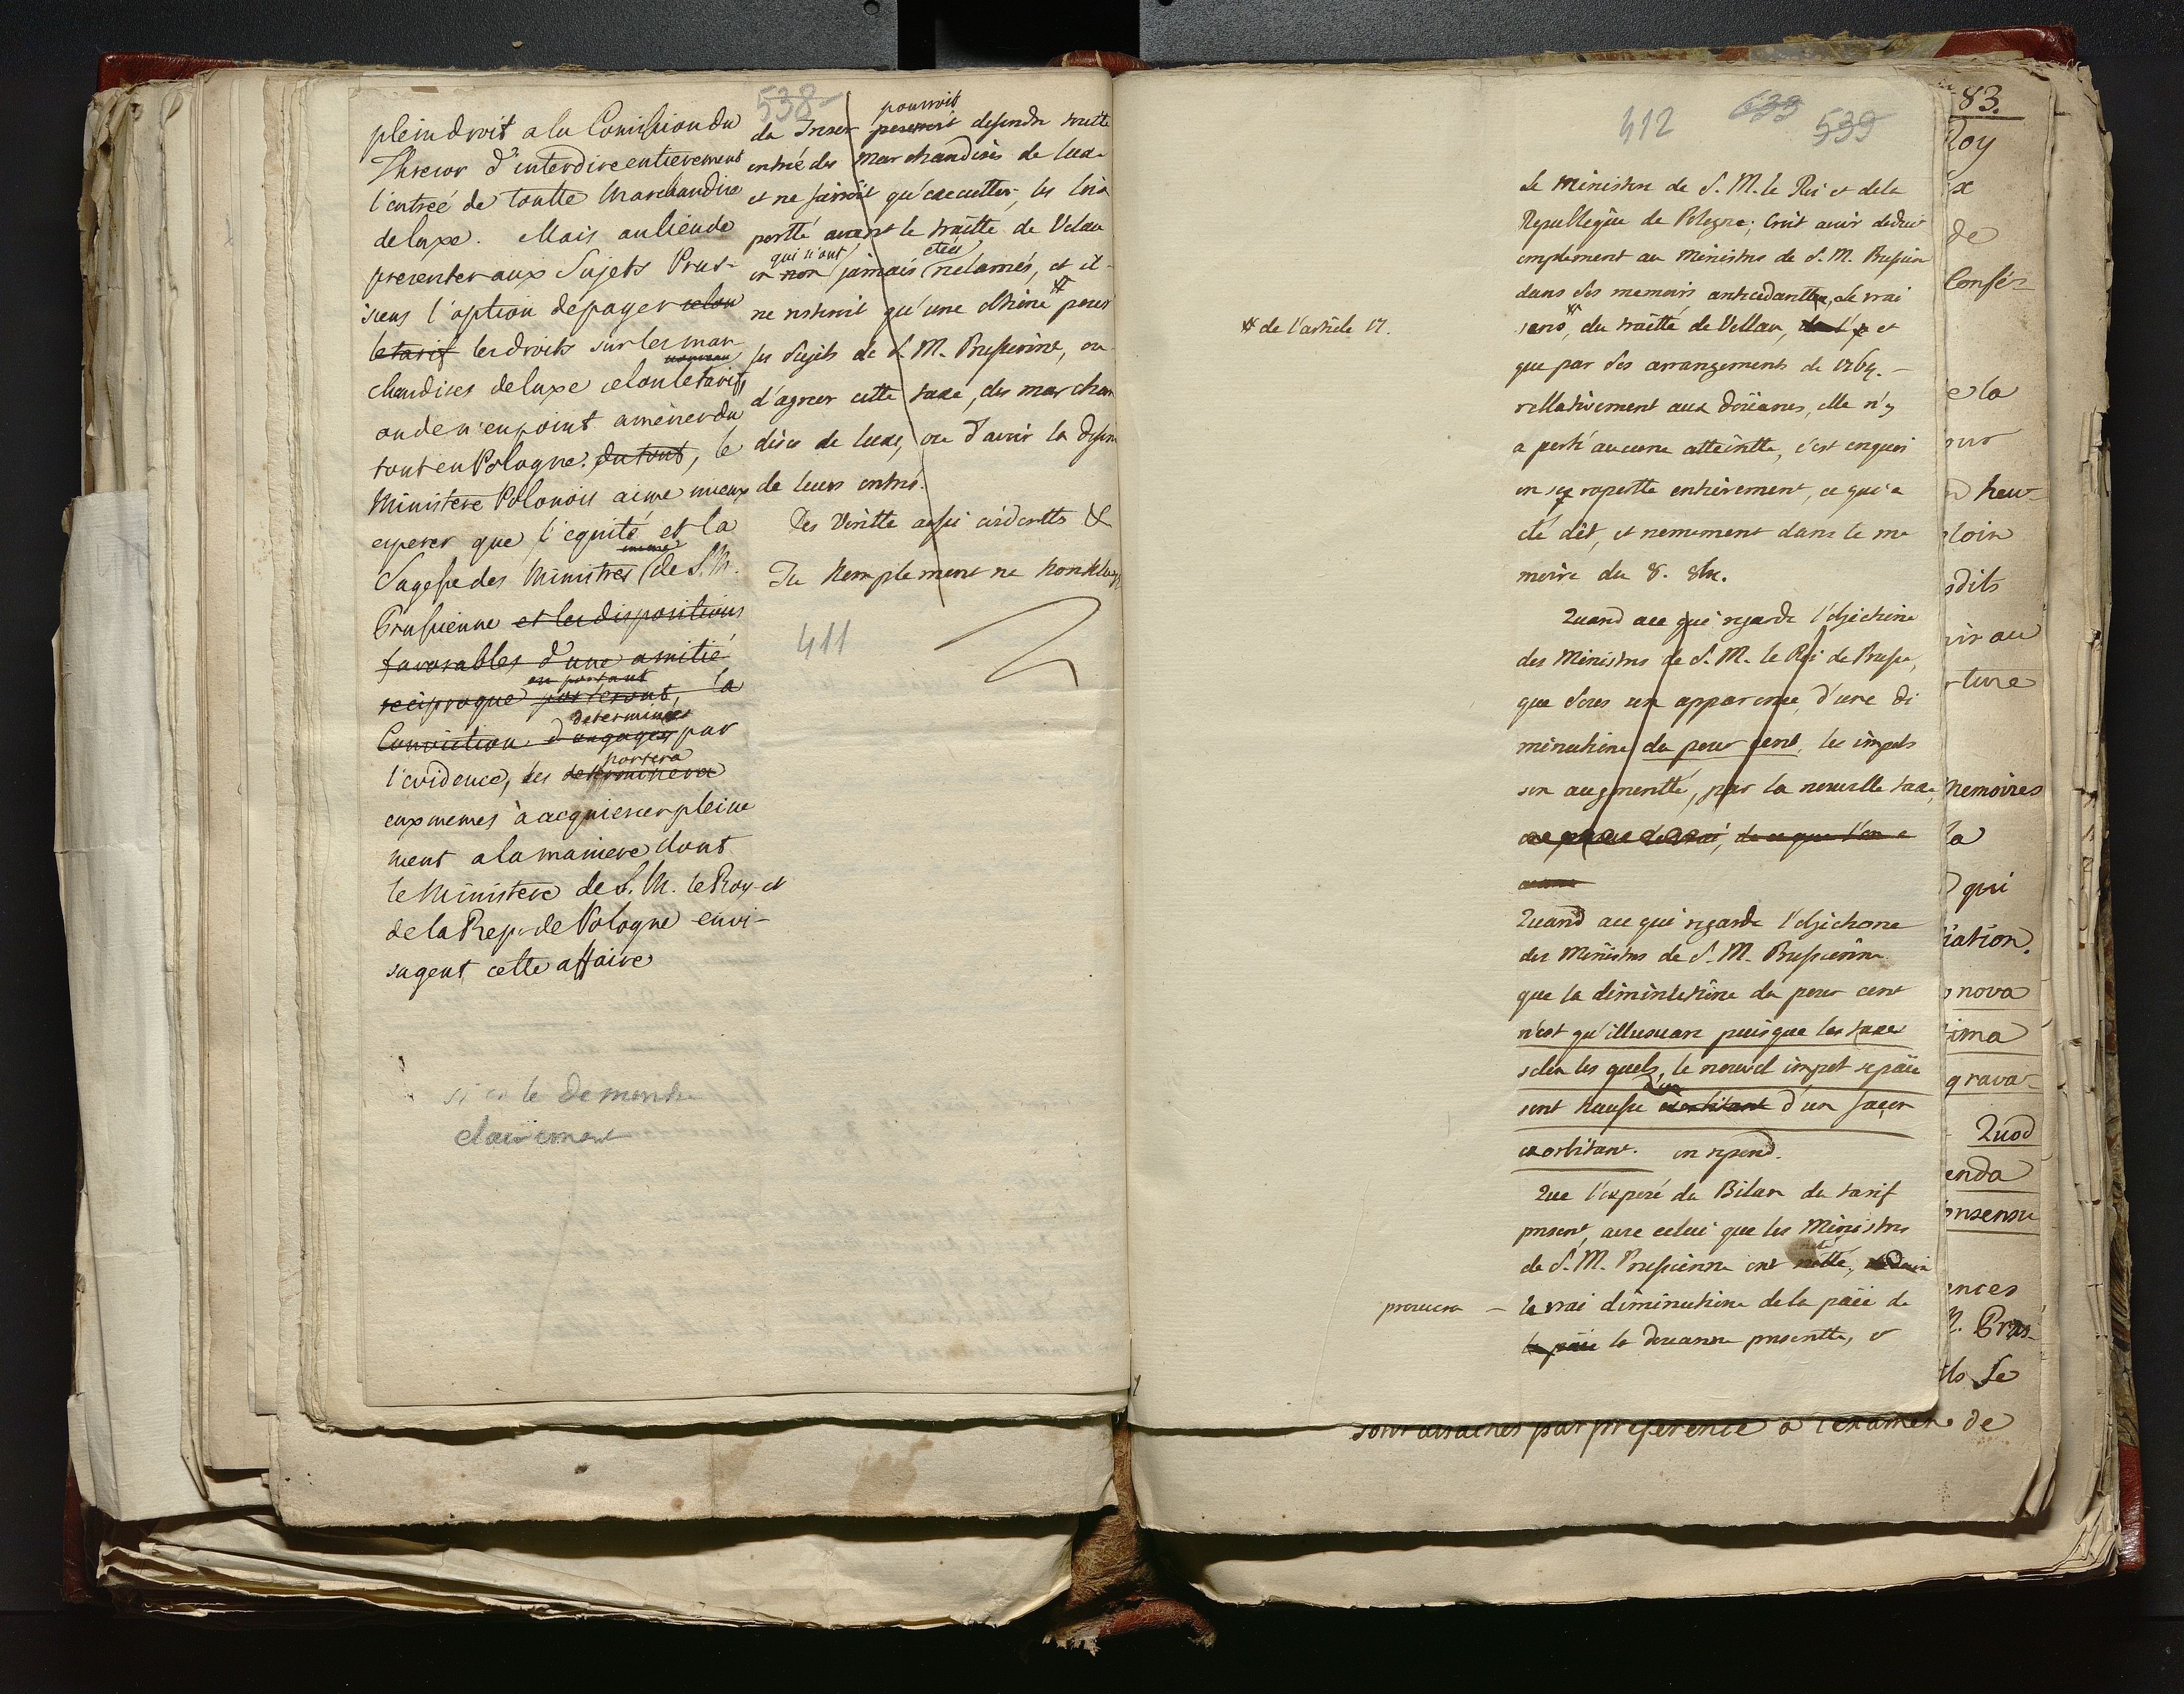 538
plein droit a la Comission du
Thresor d'interdire entierement
l'entreé de toutte Marchandise
de luxe. Mais au lieu de
presenter aux Sujets Prus-
siens l'option de payer selon
le tarif les droits sur les mar-
nouveau
chandises de luxe selon le tarif
ou de n'en point amener du
tout en Pologne. du tout, le
Ministere Polonois aime mieux
esperer que l'equité et la
meme
Sagesse des Ministres de S. M.
Prussienne et les dispositions
favorables d'une amitié
en portant
reciproque porteront, la
determinés
Conviction d'engager par
portera
l'evidence, les determinera
eux memes à acquiescer pleine
ment a la maniere dont
le Ministere de S. M. le Roy et
de la Rep. de Pologne envi-
sagent cette affaire
si on le demontre
clairement
pourroit
du Tresor defendre toutte
entrée des Marchandises de luxe
et ne fairoit qu'executter les loix
portté avant le traitte de Velau
qui n'ont etées
et non jamais reclamés, et il
ne resteroit qu'une obtione # pour
les Sujets de S. M. Prussienne, ou
d'agreer cette taxe, des marchan
dises de luxe, ou d'avoir la defen
de leurs entré.
Des Veritte aussi evidentts &
411
412 639 539
Le Ministere de S. M. le Roi et de la
Republeque de Pologne; Croit avoir deduit
emplement au Ministres de S. M. Prussien
dans ses memoirs antecedantte, Le vrai
# de l'article 17.
sens #, du traitté de Vellau, et
que par des arrangements de 1764. -
rellativement aux doüanes, elle n'y
a porté aucune atteintte, c'est enquoi
on se raportte entierement, ce qui a
eté dit, et nomement dans le me
moire du 8. 8bre.
Quand ace qui regarde l'objectione
des Ministres de S. M. le Roi de Prusse,
que sous un apparence, d'une di
minutione du pour cent, les impots
son augmentté, par la nouvelle taxe,
Quand ace qui regarde l'objectione
des Ministres de S. M. Prussienne
que la diminutione du pour cent
n'est qu'illusoare puisque les taxes
selon les quels, le nouvel impot se päie
sont hausse exorbitant d'un façon
exorbitant. on repond.
Que l'exposé du Bilan du tarif
present, avec celui que les Ministres
de S. M. Prussienne ont notté,
prouvera — la vrai diminutione de la päie de
la päie la douanne presentte, &
83.
Roy
de
Confér-
e la
heu-
loin
dits
ir au
rture
Memoires
la
qui
iation.
nova
ima
grava-
Quod
enda
onsensu
ences
M. Prus-
ls se
sont attachés par preference a l'examen de